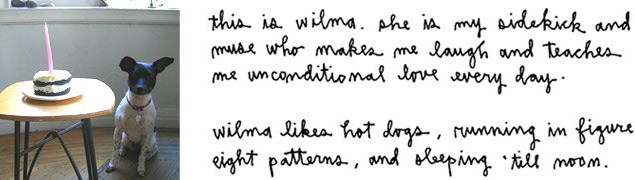 this is wilma. she is my sidekick and
muse who makes me laugh and teaches
me unconditional love every day.
wilma likes hot dogs, running in figure
eight patterns, and sleeping 'till noon.